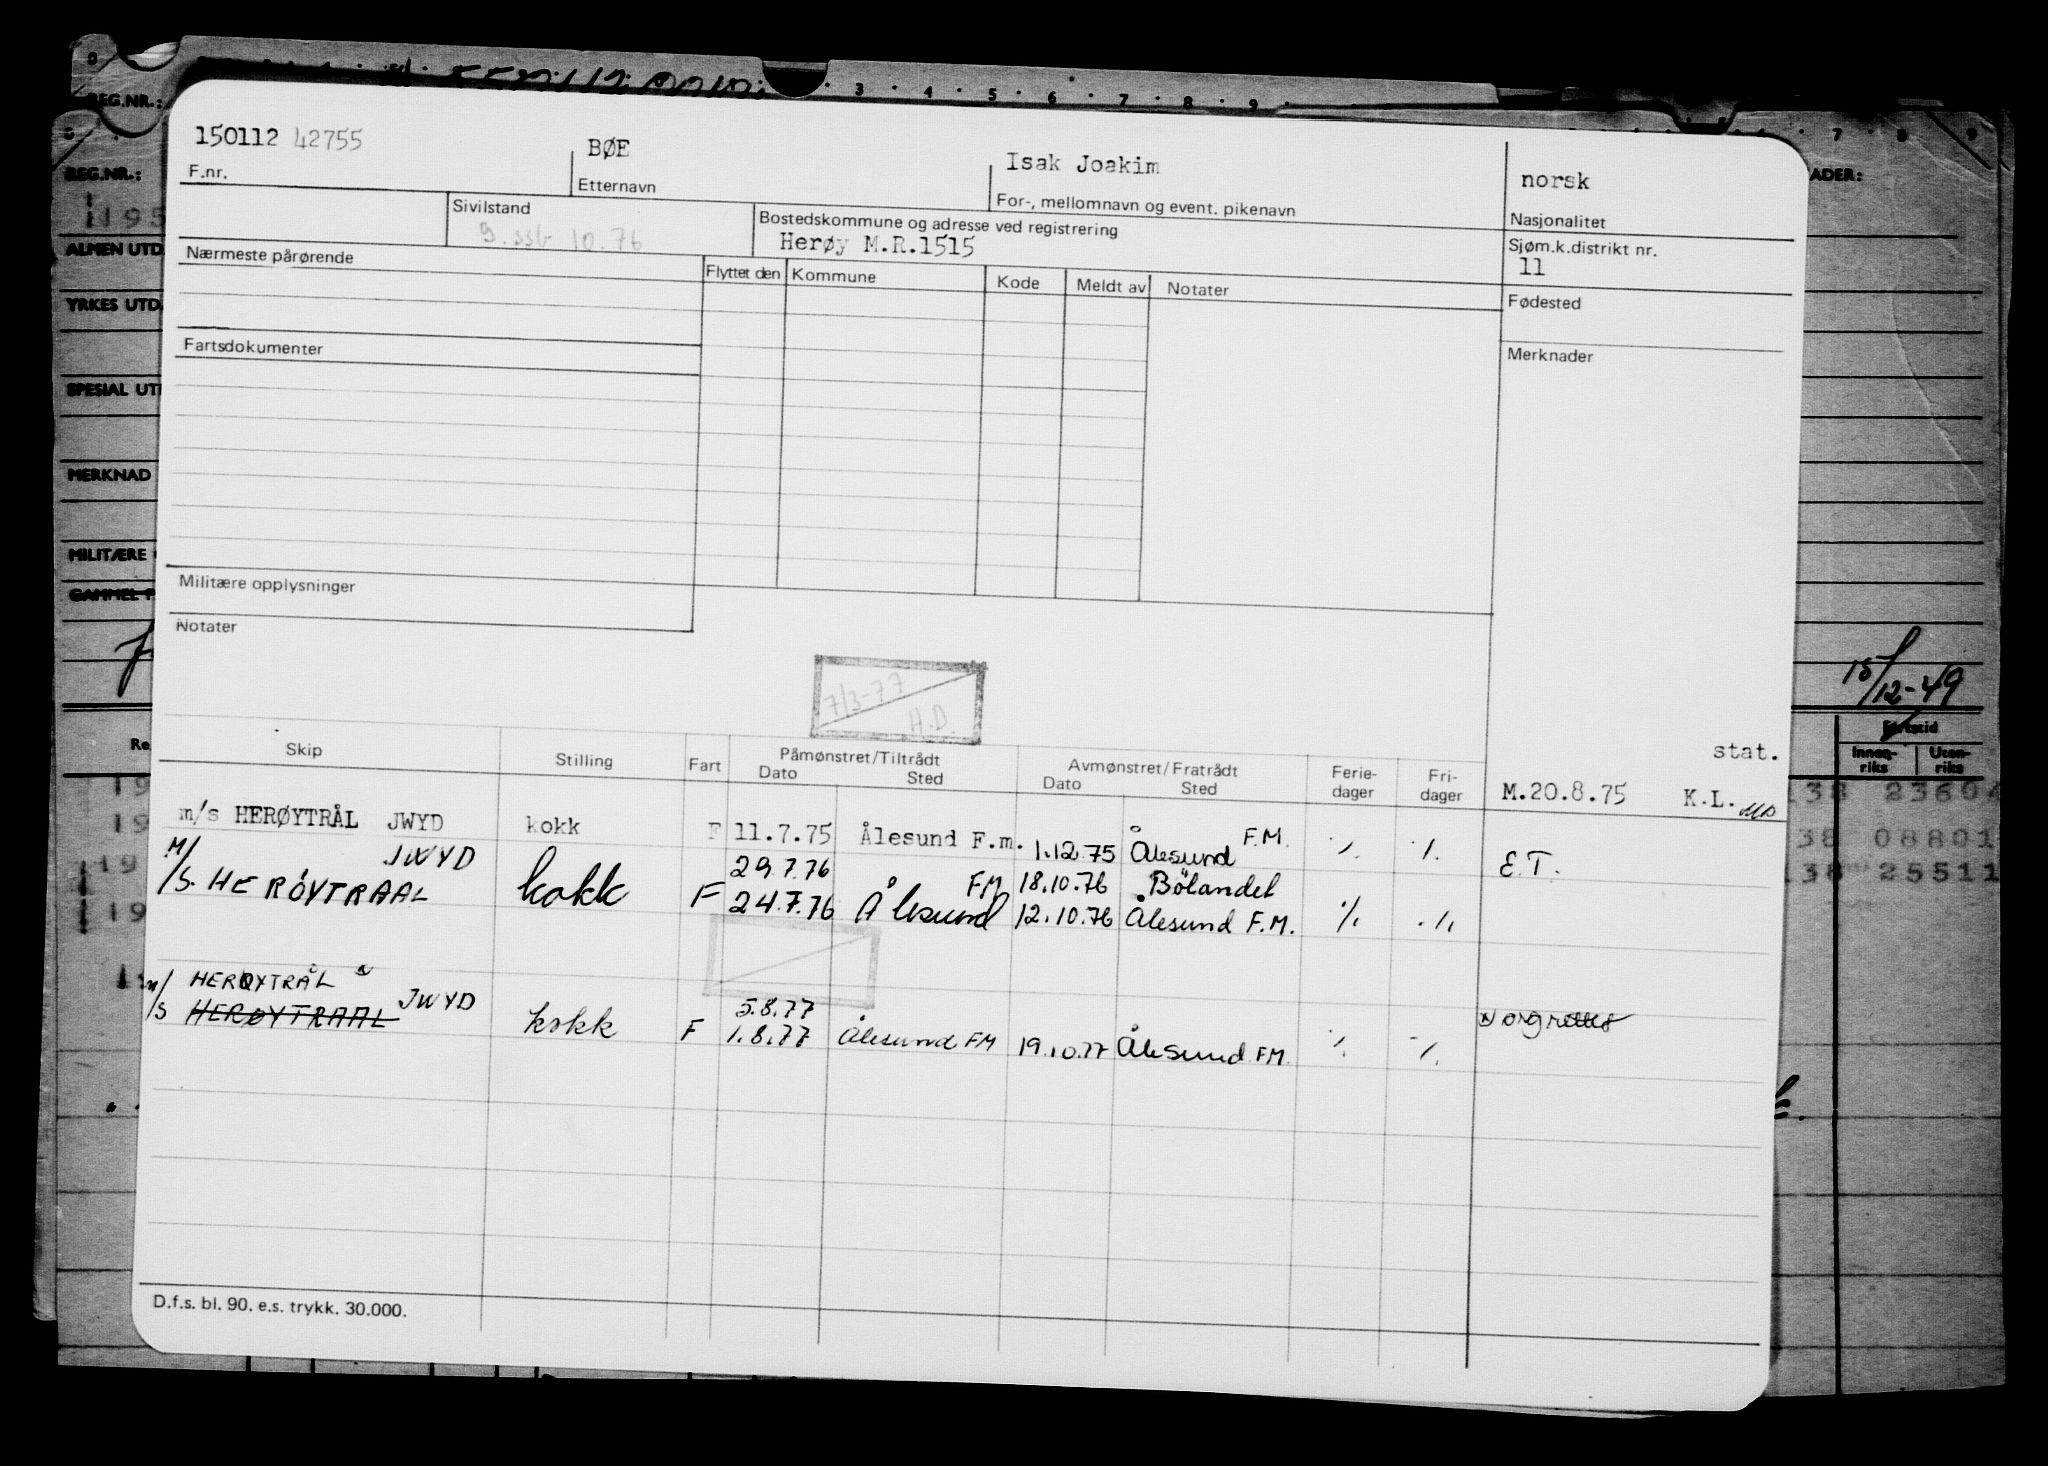 3 4 5 6 7 8 9
REG.NR.:
REG.NR.:
ALMEN UTD.
YRKES UTD.
SPESIAL UTD
MERKNAD
MILITÆRE
150112 42755
F.nr.
BØE
Etternavn
Isak Joakim
For-, mellomnavn og event. pikenavn
norsk
Nasjonalitet
Sivilstand
g. ssb 10.76
Bostedskommune og adresse ved registrering
Herøy M.R.1515
Sjøm.k.distrikt nr.
11
Nærmeste pårørende
Flyttet den Kommune Kode Meldt av Notater
Fødested
Fartsdokumenter
Merknader
Militære opplysninger
Notater
7/3-77
H.D.
15/12-49
Innen-riks Uten-riks
stat.
Skip Stilling Fart Påmønstret/Tiltrådt Avmønstret/Fratrådt Ferie-dager Fri-dager
Dato Sted Dato Sted
M.20.8.75 K.L.
m/s HERØYTRÅL JWYD kokk F 11.7.75 Ålesund F.m. 1.12.75 Ålesund F.M. ٪ ٪
JWYD 29.7.76 FM 18.10.76 Bölandet E.T.
M/S. HERÖYTRAAL kokk F 24.7.76 Ålesund 12.10.76 Ålesund F.M. ٪ ٪
HERØYTRÅL x
5.8.77
m/s HERØYTRAAL JWYD kokk F 1.8.77 Ålesund FM 19.10.77 Ålesund FM. ٪ ٪
D.f.s. bl. 90. e.s. trykk. 30.000.
ADER:
38 08801
38 25511